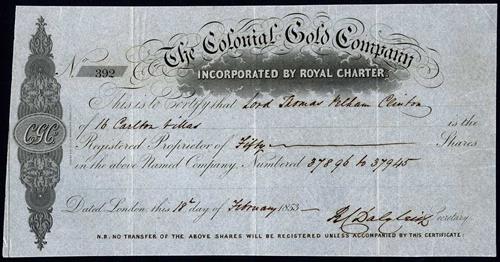 The Colonial Gold Company
No 392
INCORPORATED BY ROYAL CHARTER.
This is to Certify that Lord Thomas Pelham Clinton
of 16 Carlton Villas is the
Registered Proprietor of Fifty Shares
in the above Named Company, Numbered 37896 to 37945
C.G.C.
Dated London, this 18th day of February 1853
Secretary.
N.B: NO TRANSFER OF THE ABOVE SHARES WILL BE REGISTERED UNLESS ACCOMPANIED BY THIS CERTIFICATE.